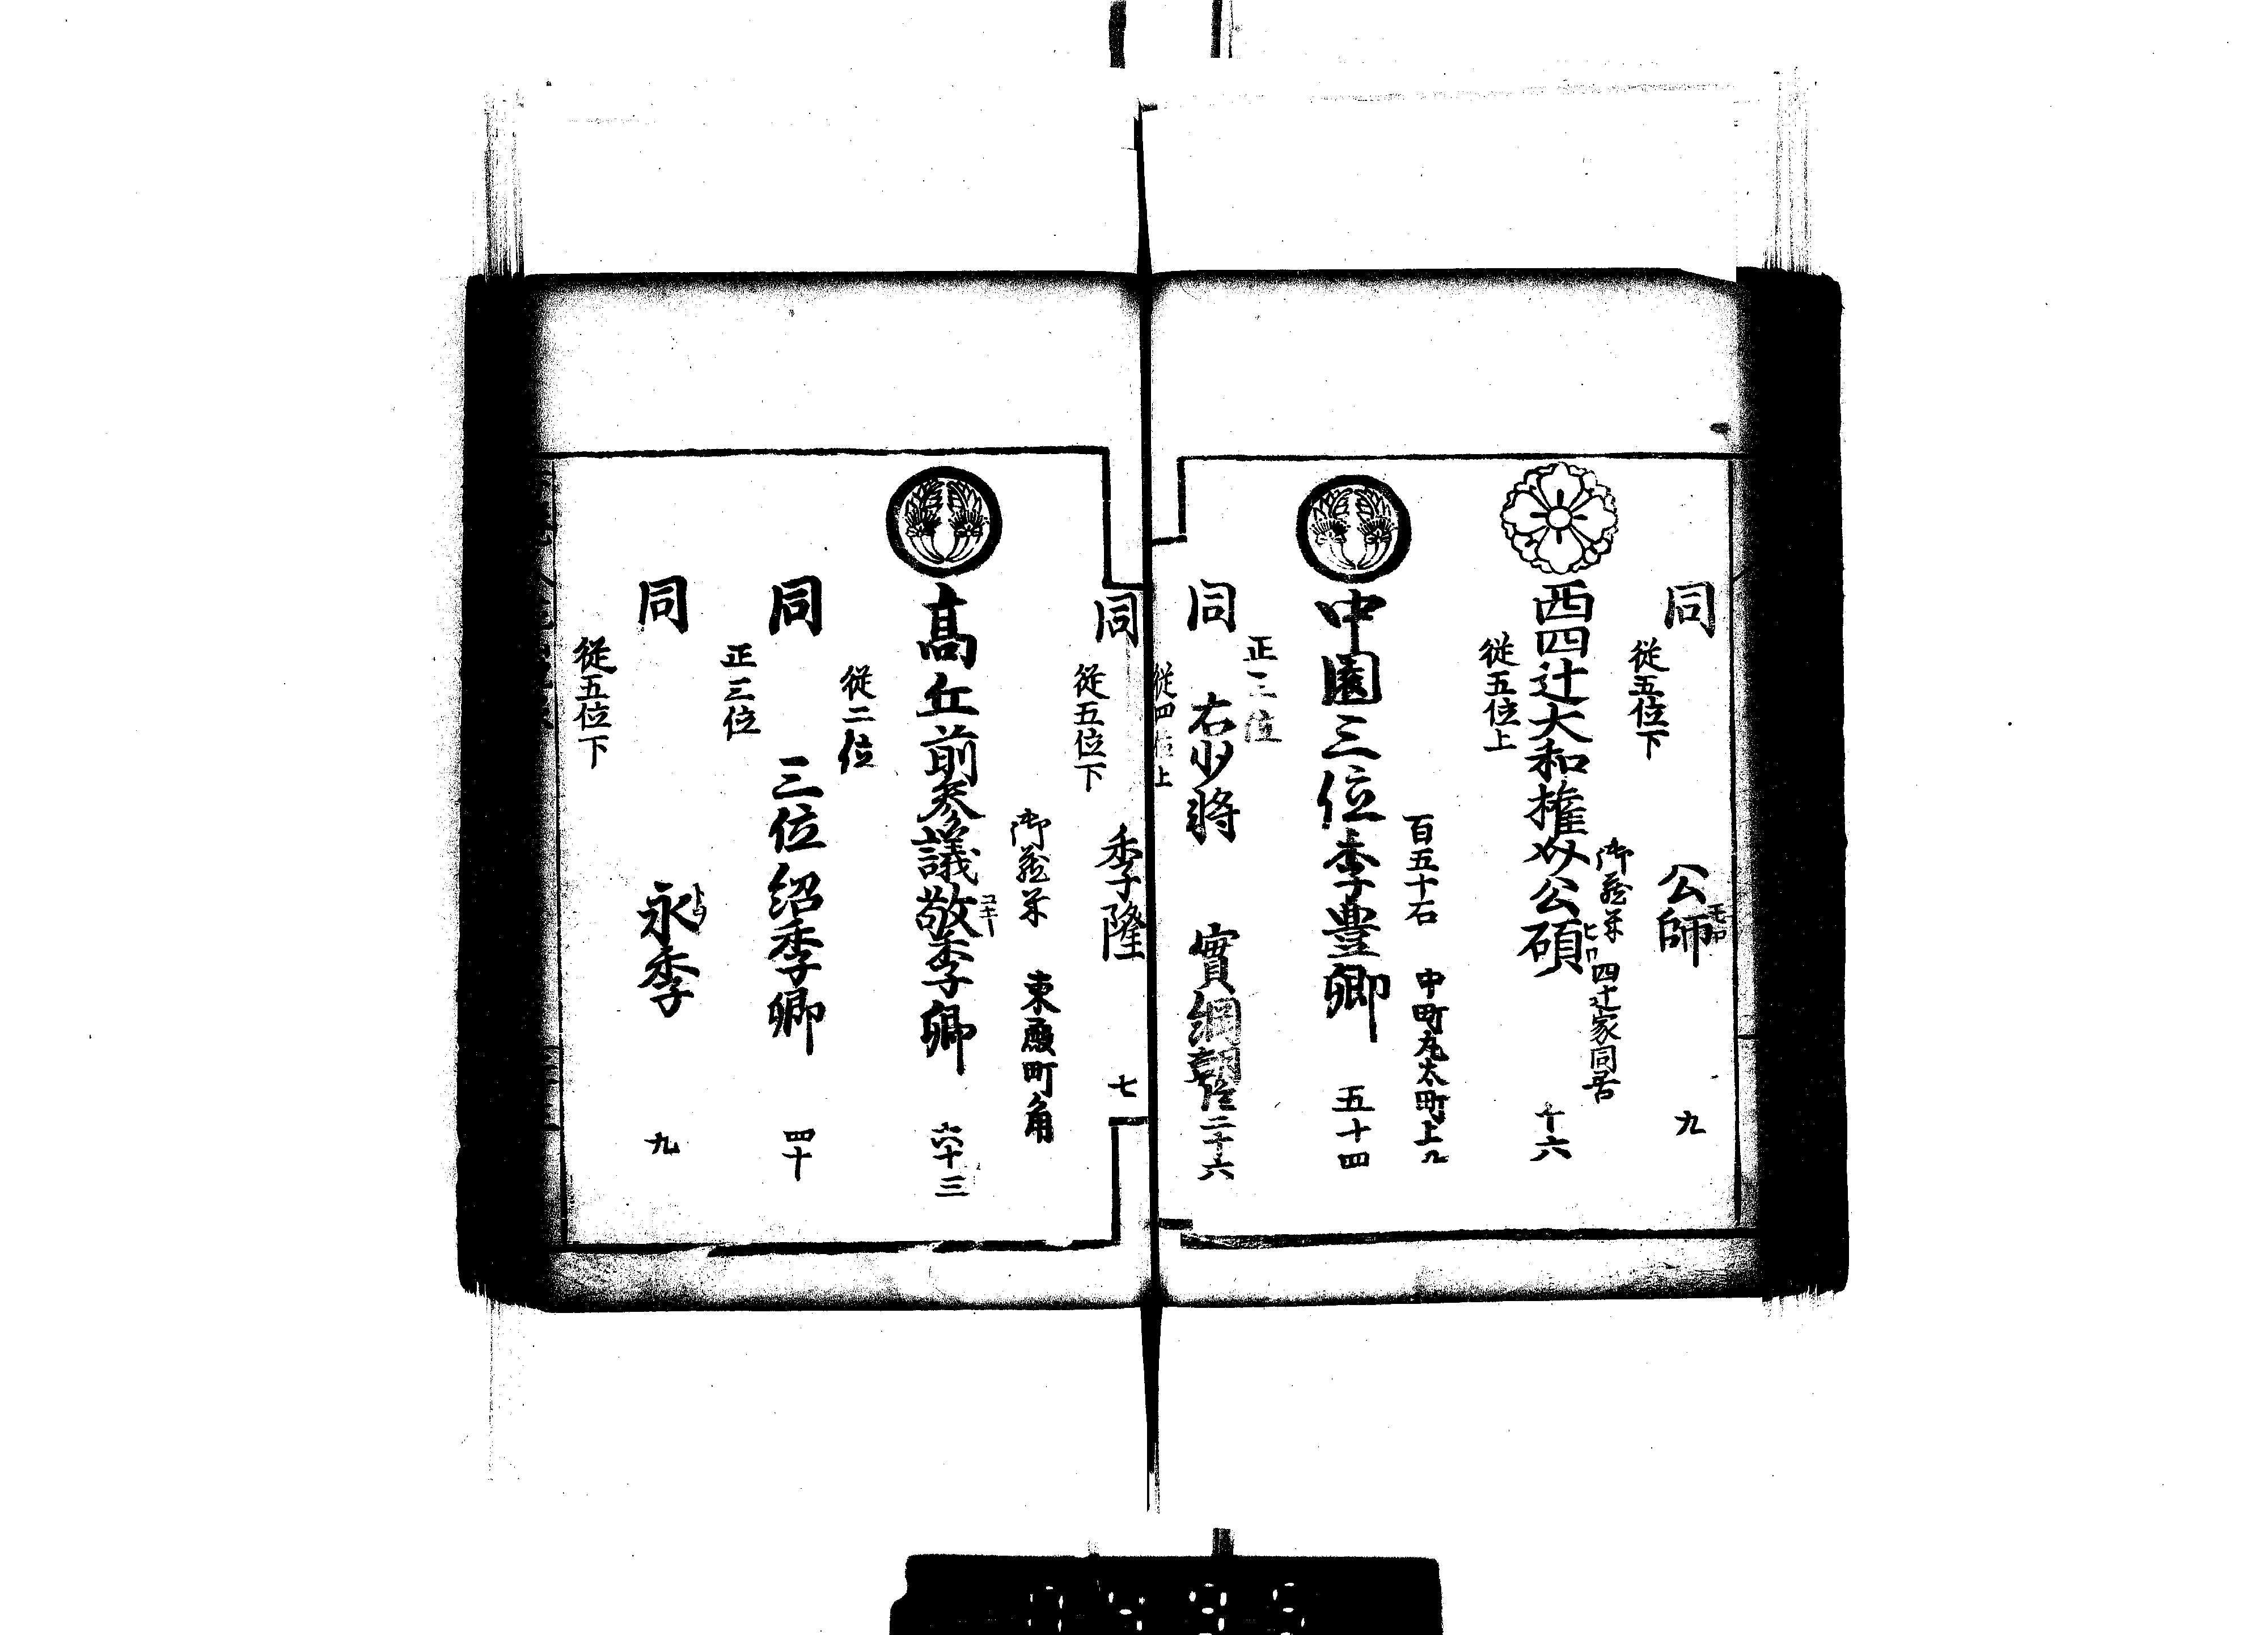 同 公師 九
モロ
從五位下
御藏米 四辻家同居
西四辻大和權介公碩 十六
ヒロ
從五位上
百五十石 中町丸太町上ル
中園三位季豊卿 五十四
正三位
同 右少將 實綱朝臣 二十六
從四位上
同 季隆 七
從五位下
御藏米 東殿町角
高丘前參議敬季卿 六十三
從二位
同 三位紹季卿 四十
正三位
同 永季 九
從五位下